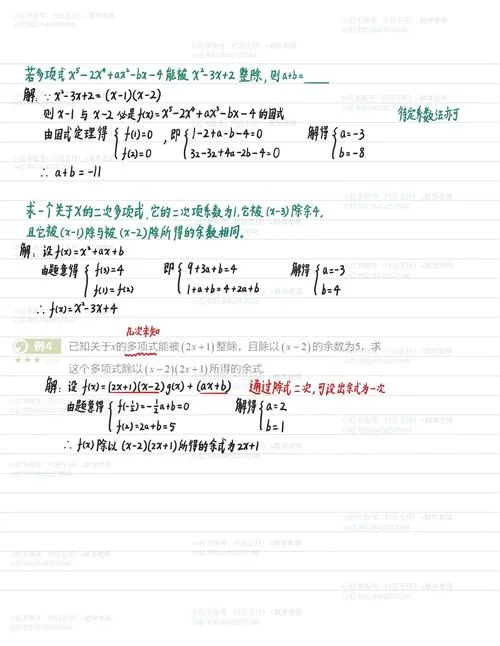 若多项式 x⁵-2x⁴+ax²-bx-4 能被 x²-3x+2 整除,则 a+b=____
解: ∵ x²-3x+2=(x-1)(x-2)
则 x-1 与 x-2 必是 f(x)=x⁵-2x⁴+ax³-bx-4 的因式
待定系数法亦可
由因式定理得 { f(1)=0 ,即 { 1-2+a-b-4=0 解得 { a=-3
f(2)=0 32-32+4a-2b-4=0 b=-8
∴ a+b=-11
求一个关于X的二次多项式,它的二次项系数为1,它被(x-3)除余4,
且它被(x-1)除与被(x-2)除所得的余数相同。
解: 设 f(x)=x²+ax+b
由题意得 { f(3)=4 即 { 9+3a+b=4 解得 { a=-3
f(1)=f(2) 1+a+b=4+2a+b b=4
∴ f(x)=x²-3x+4
几次未知
例4 已知关于x的多项式能被(2x+1)整除,且除以(x-2)的余数为5,求
★★★
这个多项式除以(x-2)(2x+1)所得的余式.
解: 设 f(x)=(2x+1)(x-2)g(x)+(ax+b) 通过除式二次,可设出余式为一次
由题意得 { f(-½)=-½a+b=0 解得 { a=2
f(2)=2a+b=5 b=1
∴ f(x)除以(x-2)(2x+1)所得的余式为2x+1